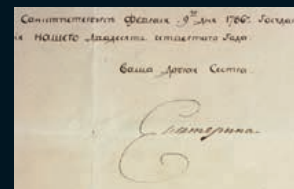 Санктпетербургъ февраля 9го дня 1786. Государ
я нашего двадесять четвертаго Года.
Ваша добрая Сестра.
Екатерина